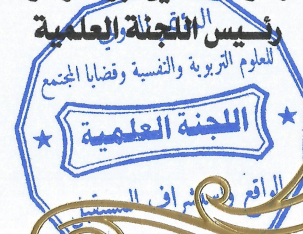 رئيس اللجنة العلمية
للعلوم التربوية والنفسية وقضايا المجتمع
اللجنة العلمية
الواقع واستشراف المستقبل